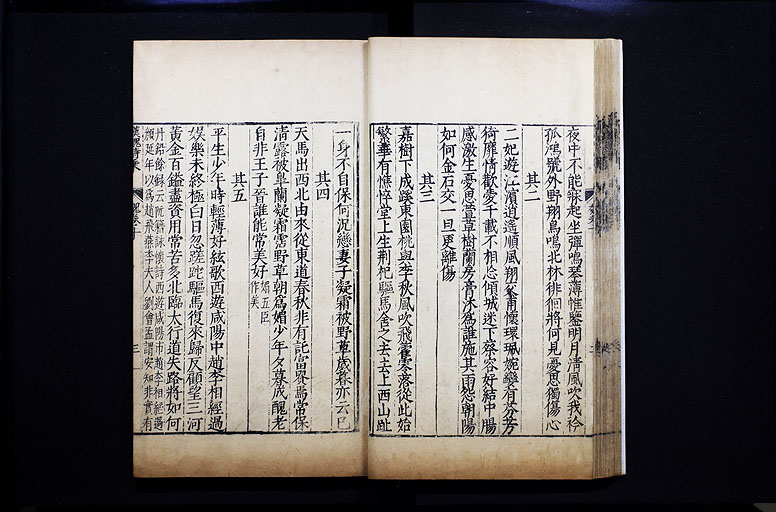 夜中不能寐起坐彈鳴琴薄帷鑒明月清風吹我衿
孤鴻號外野翔鳥鳴北林徘徊將何見憂思獨傷心
其二
二妃遊江濱逍遙順風翔交甫懷環珮婉孌有芬芳
猗靡情歡愛千載不相忘傾城迷下蔡容好結中腸
感激生憂思萱草樹蘭房膏沐為誰施其雨怨朝陽
如何金石交一旦更離傷
其三
嘉樹下成蹊東園桃與李秋風吹飛藿零落從此始
繁華有憔悴堂上生荆杞驅馬舍之去去上西山趾
一身不自保何況戀妻子凝霜被野草歲暮亦云已
其四
天馬出西北由來從東道春秋非有託富貴焉常保
清露被皐蘭凝霜霑野草朝為媚少年夕暮成醜老
自非王子晉誰能常美好
媚五臣
作美
其五
平生少年時輕薄好絃歌西遊咸陽中趙李相經過
娛樂未終極白日忽蹉跎驅馬復來歸反顧望三河
黃金百鎰盡資用常苦多北臨太行道失路將如何
丹鉛餘錄云阮籍詠懷詩西遊咸陽市趙李相經過
顏延年以為趙飛燕李夫人劉會孟謂安知非實有
三